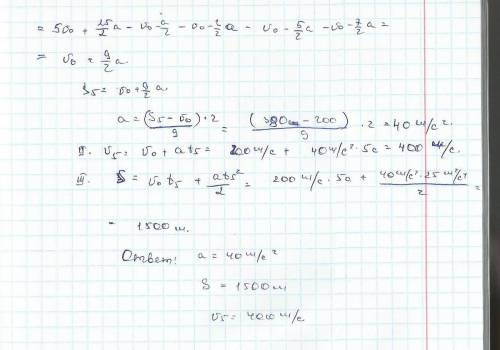 = 5υ₀ + 25/2 a - υ₀ - a/2 - υ₀ - 3/2 a - υ₀ - 5/2 a - υ₀ - 7/2 a =
= υ₀ + 9/2 a.
S₅ = υ₀ + 9/2 a
a = (S₅ - υ₀)·2 / 9 = (380м - 200) / 9 · 2 = 40 м/с².
II. υ₅ = υ₀ + at₅ = 200 м/с + 40 м/с² · 5с = 400 м/с.
III. S = υ₀t₅ + at₅²/2 = 200 м/с · 5с + 40 м/с² · 25 м²/с² / 2 =
= 1500 м.
Ответ: a = 40 м/с²
S = 1500 м
υ₅ = 400 м/с